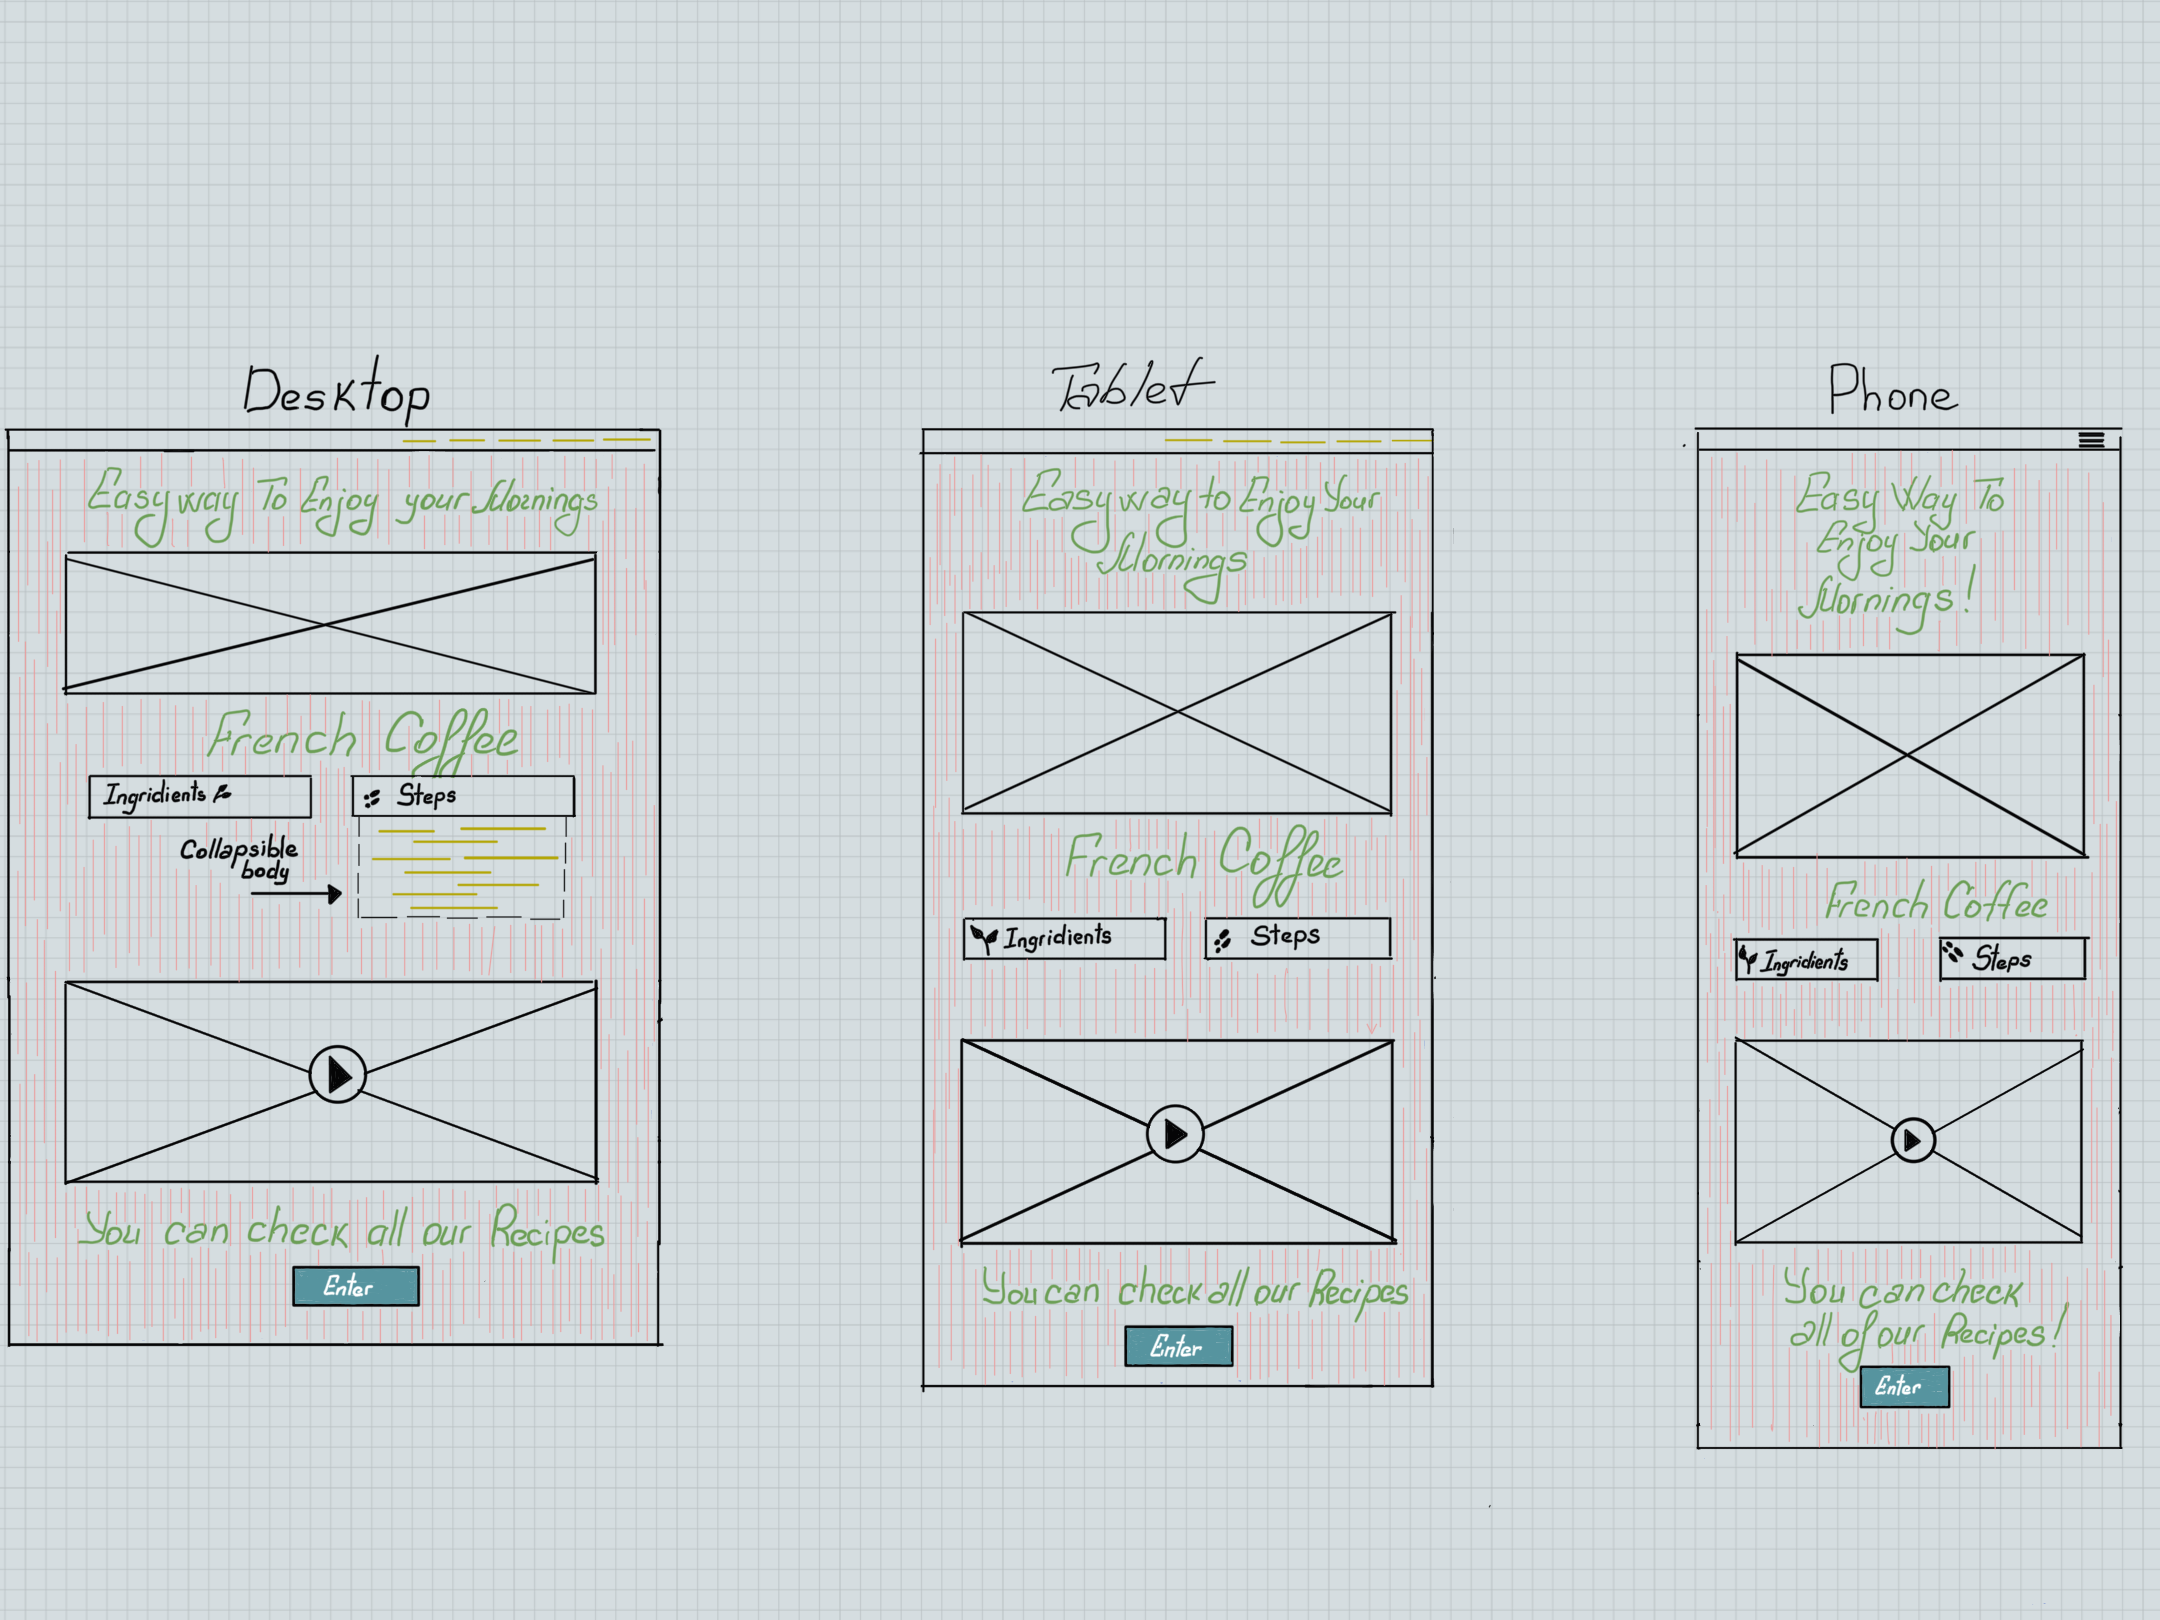 Desktop
Easy way To Enjoy your Mornings
French Coffee
Ingridients
Steps
Collapsible
body
You can check all our Recipes
Enter
Tablet
Easy way to Enjoy Your
Mornings
French Coffee
Ingridients
Steps
You can check all our Recipes
Enter
Phone
Easy Way To
Enjoy Your
Mornings!
French Coffee
Ingridients
Steps
You can check
all of our Recipes!
Enter